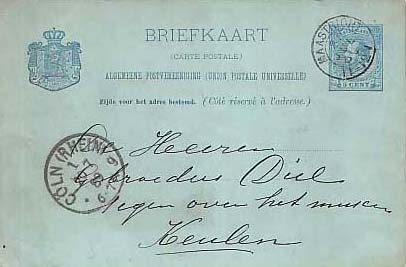 BRIEFKAART
(CARTE POSTALE)
ALGEMEENE POSTVEREENIGING (UNION POSTALE UNIVERSELLE)
Zijde voor het adres bestemd. (Côté réservé à l'adresse.)
MAASTRICHT
5 CENT
CÖLN (RHEIN)
De Heeren
Gebroeders Diel
tegen over het museum
Keulen